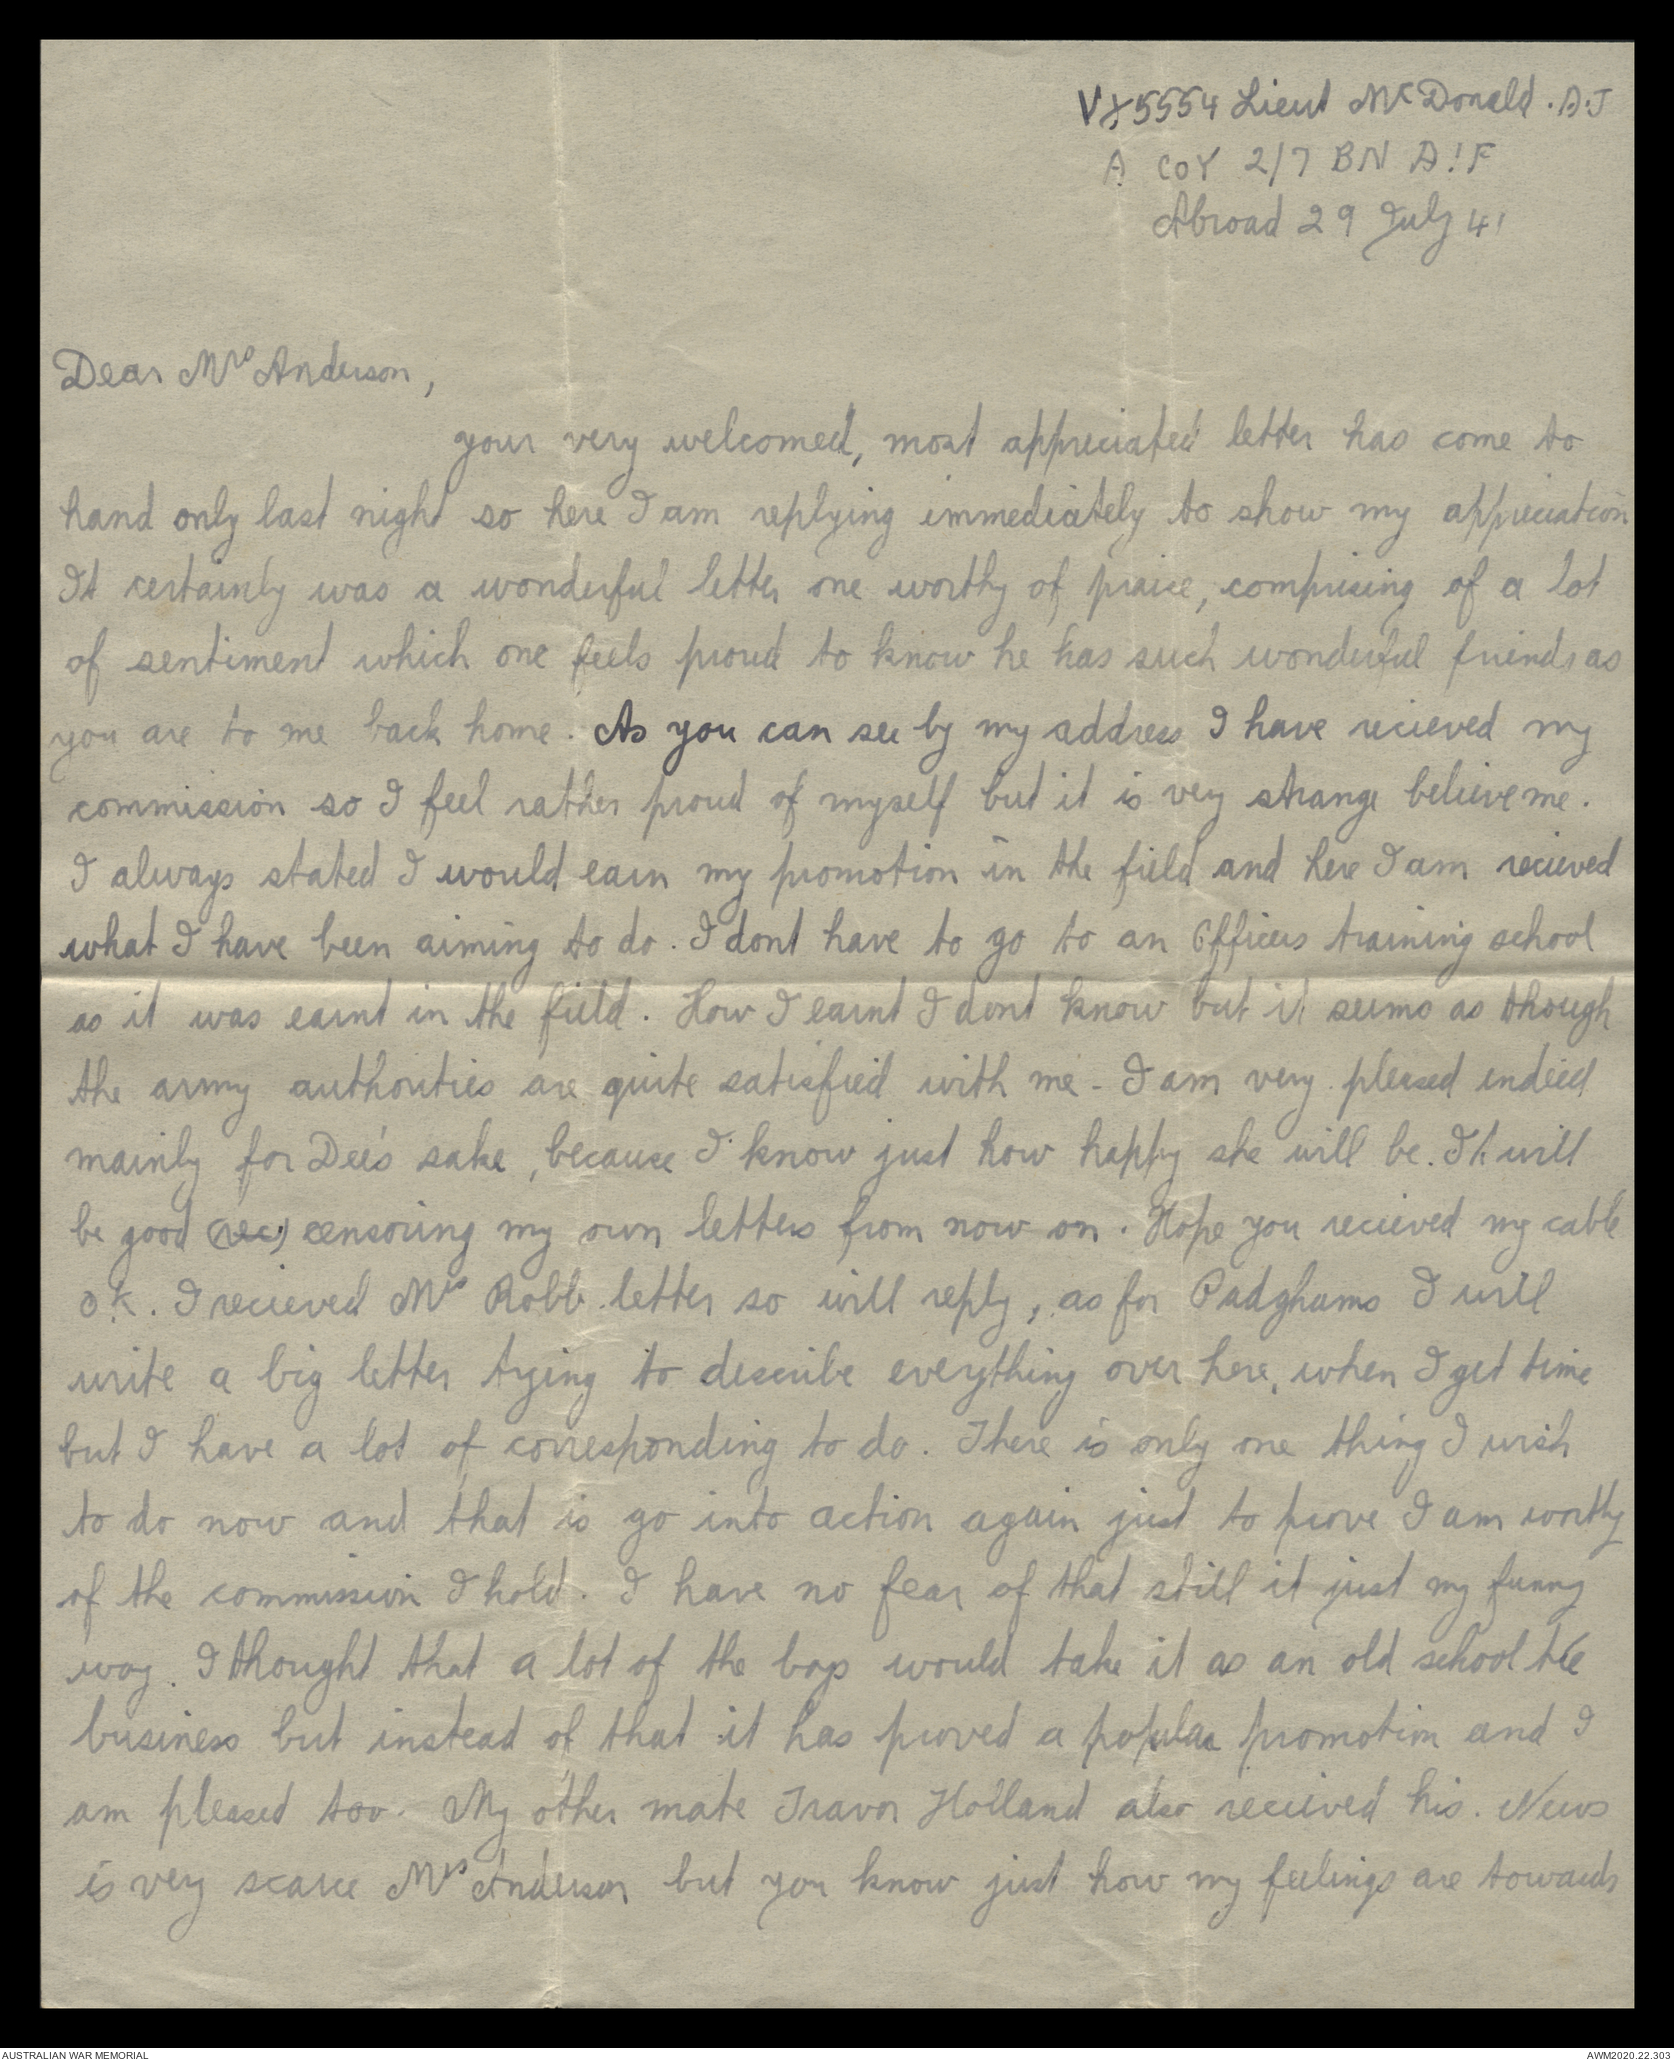 VX5554 Lieut McDonald. A.J
A COY 2/7 BN A.I.F
Abroad 29 July 41
Dear Mrs Anderson,
your very welcomed, most appreciated letter has come to
hand only last night so here I am replying immediately to show my appreciation
It certainly was a wonderful letter one worthy of praise, comprising of a lot
of sentiment which one feels proud to know he has such wonderful friends as
you are to me back home. As you can see by my address I have recieved my
commission so I feel rather proud of myself but it is very strange believe me.
I always stated I would earn my promotion in the field and here I am recieved
what I have been aiming to do. I dont have to go to an Officers training school
as it was earnt in the field. How I earnt I dont know but it seems as though
the army authorities are quite satisfied with me - I am very pleased indeed
mainly for Dee's sake, because I know just how happy she will be. It will
be good (rec) censoring my own letters from now on. Hope you recieved my cable
O.K. I recieved Mrs Robb letter so will reply, as for Padghams I will
write a big letter trying to describe everything over here, when I get time
but I have a lot of corresponding to do. There is only one thing I wish
to do now and that is go into action again just to prove I am worthy
of the commission I hold. I have no fear of that still it just my funny
way. I thought that a lot of the boys would take it as an old school tie
business but instead of that it has proved a popular promotion and I
am pleased too. My other mate Travor Holland also recieved his. News
is very scarce Mrs Anderson but you know just how my feelings are towards
AUSTRALIAN WAR MEMORIAL
AWM2020.22.303